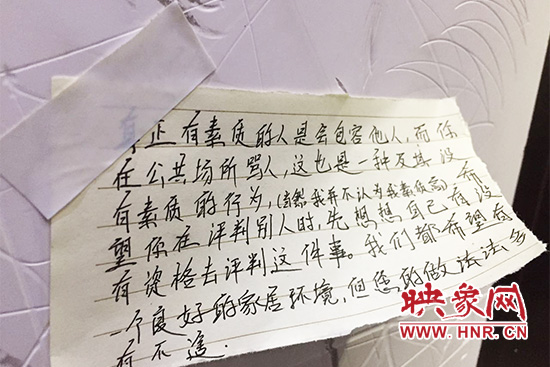 真正有素质的人是会包容他人,而你
在公共场所骂人,这也是一种及其没
有素质的行为,(当然我并不认为我素质高)希
望你在评判别人时,先想想自己有没
有资格去评判这件事。我们都希望有
一个良好的家居环境,但您的做法
有不
映象网
WWW.HNR.CN